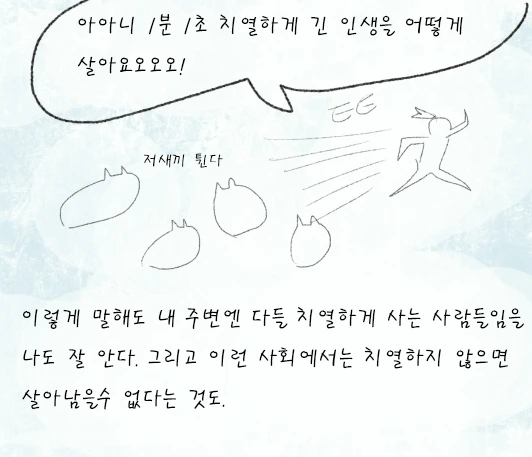 아아니 1분 1초 치열하게 긴 인생을 어떻게
살아요오오오!
ㅌㅌ
저새끼 튄다
이렇게 말해도 내 주변엔 다들 치열하게 사는 사람들임을
나도 잘 안다. 그리고 이런 사회에서는 치열하지 않으면
살아남을수 없다는 것도.